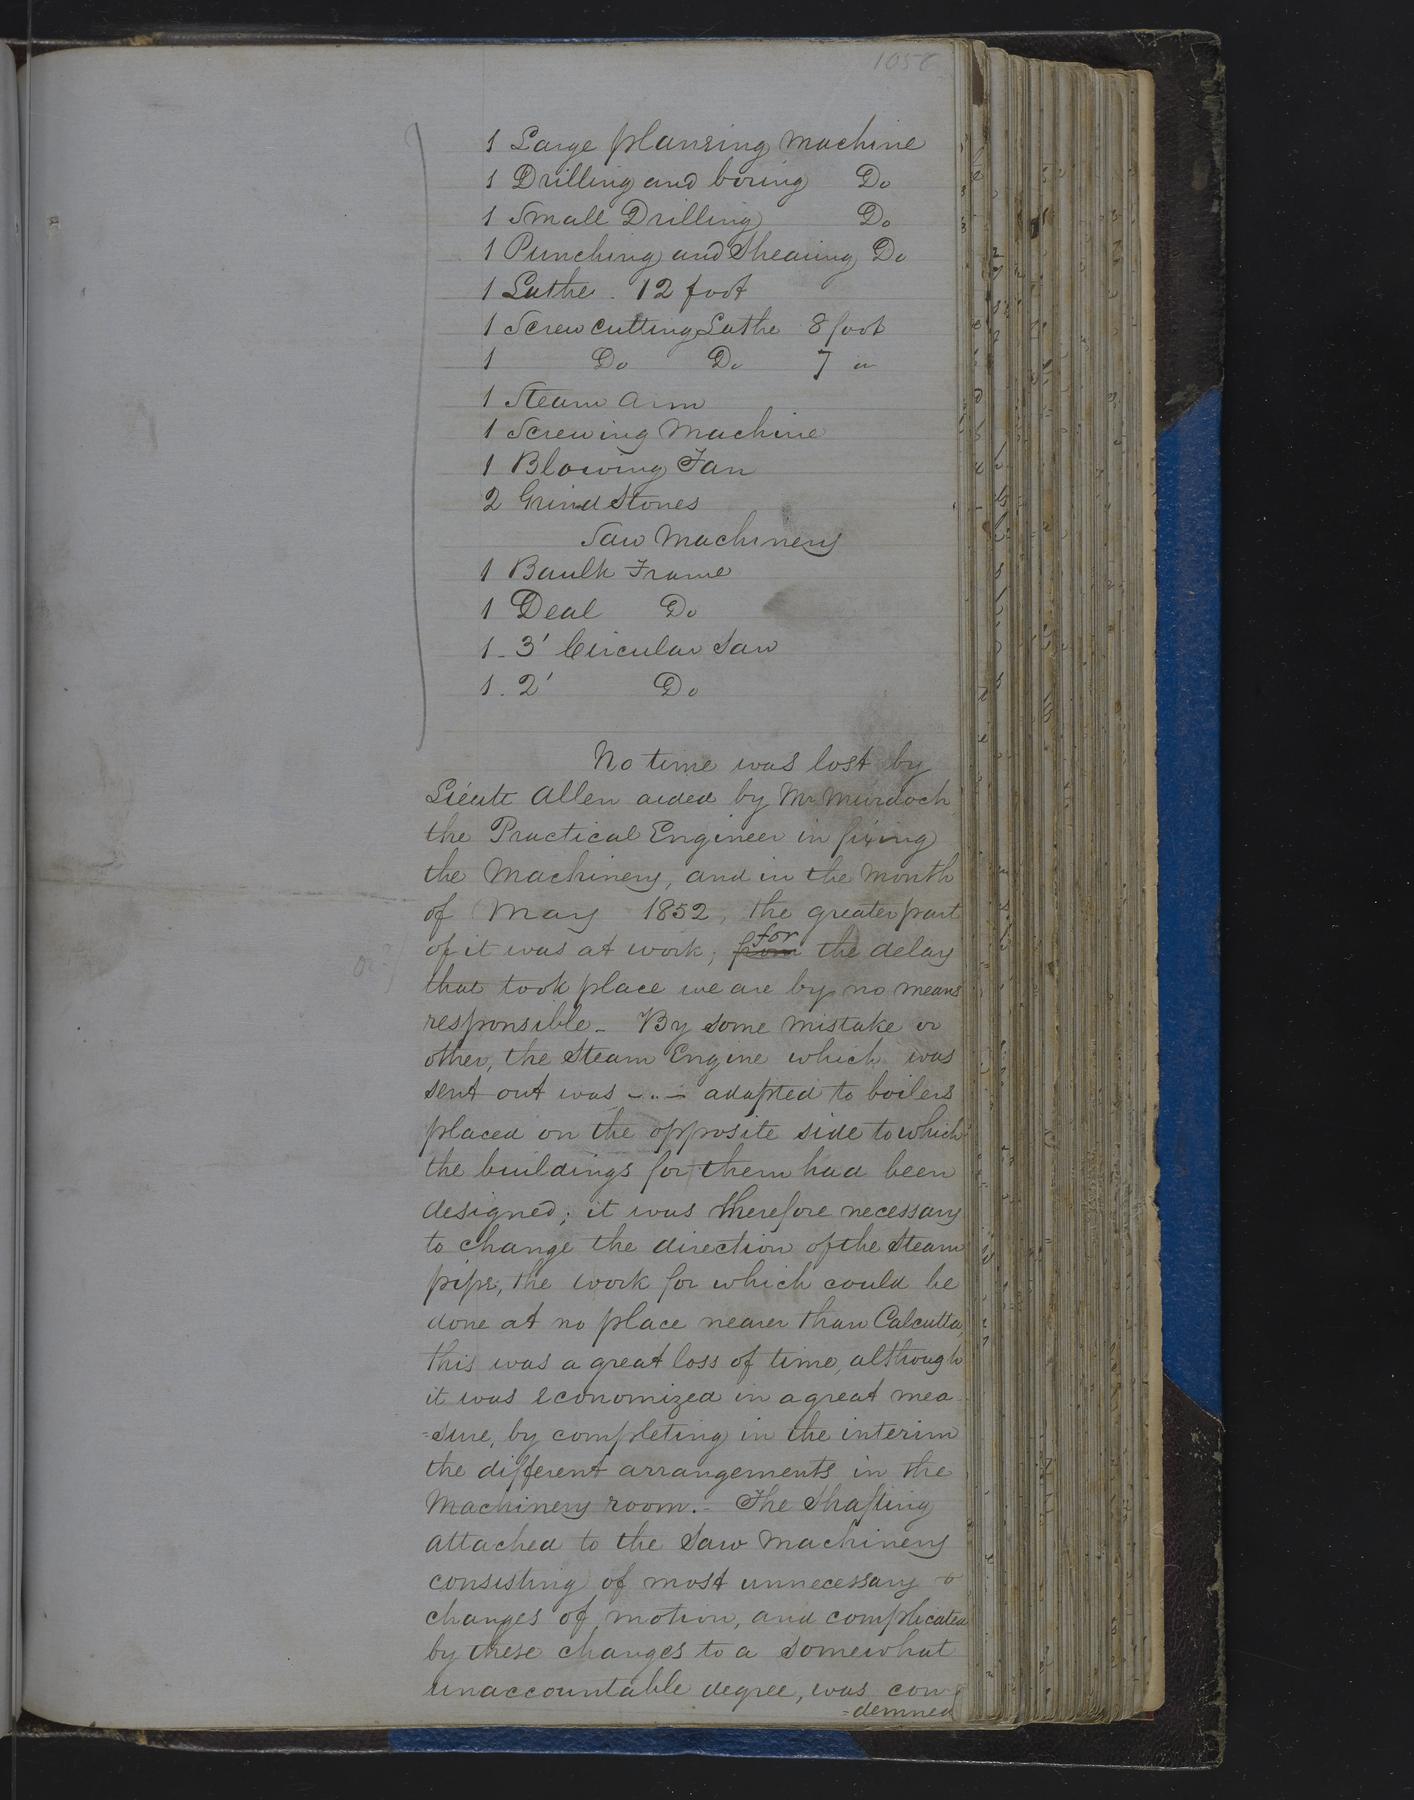 1 Large planeing machine
1 Drilling and boring Do
1 Small Drilling Do
1 Punching and Shearing Do
1 Lathe . 12 foot
1 Screw cutting Lathe 8 foot
1 Do Do 7 "
1 Steam Arm
1 Screwing Machine
1 Blowing Fan
2 Grind Stones
Saw Machinery
1 Baulk Frame
1 Deal Do
1 - 3' Circular Saw
1 . 2' Do
No time was lost by
Lieutt Allen aided by Mr Murdoch
the Practical Engineer in fixing
the Machinery, and in the Month
of May 1852, the greater part
for
of it was at work; from the delay
that took place we are by no means
responsible - By some mistake or
other, the Steam Engine which was
sent out was -..- adapted to boilers
placed on the opposite side to which
the buildings for them had been
designed; it was therefore necessary
to change the direction of the Steam
pipe, the work for which could be
done at no place nearer than Calcutta,
this was a great loss of time, although
it was economized in a great mea-
=sure, by completing in the interim
the different arrangements in the
Machinery room. - The Shafting
attached to the Saw Machinery
consisting of most unnecessary
changes of motion, and complicated
by these changes to a somewhat
unaccountable degree, was con-
=demned